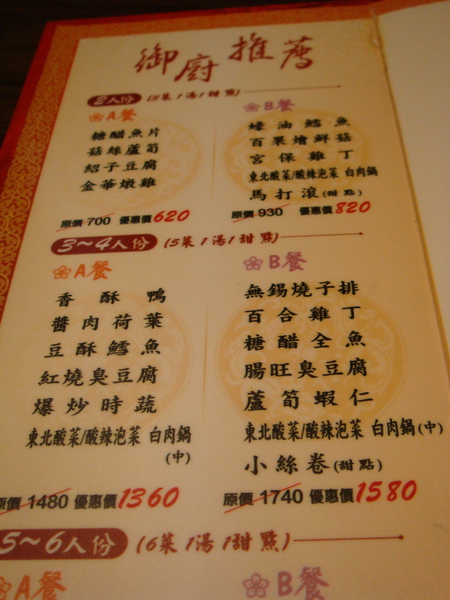 御廚推薦
2人份 (3菜1湯1甜點)
A餐
糖醋魚片
菇絲蘆筍
紹子豆腐
金華燉雞
原價 700 優惠價620
B餐
蠔油鱈魚
百果燴鮮菇
宮保雞丁
東北酸菜/酸辣泡菜 白肉鍋
馬打滾(甜點)
原價 930 優惠價820
3~4人份 (5菜1湯1甜點)
A餐
香酥鴨
醬肉荷葉
豆酥鱈魚
紅燒臭豆腐
爆炒時蔬
東北酸菜/酸辣泡菜 白肉鍋
(中)
原價 1480 優惠價1360
B餐
無錫燒子排
百合雞丁
糖醋全魚
腸旺臭豆腐
蘆筍蝦仁
東北酸菜/酸辣泡菜 白肉鍋(中)
小絲卷(甜點)
原價 1740 優惠價1580
5~6人份 (6菜1湯1甜點)
A餐
B餐